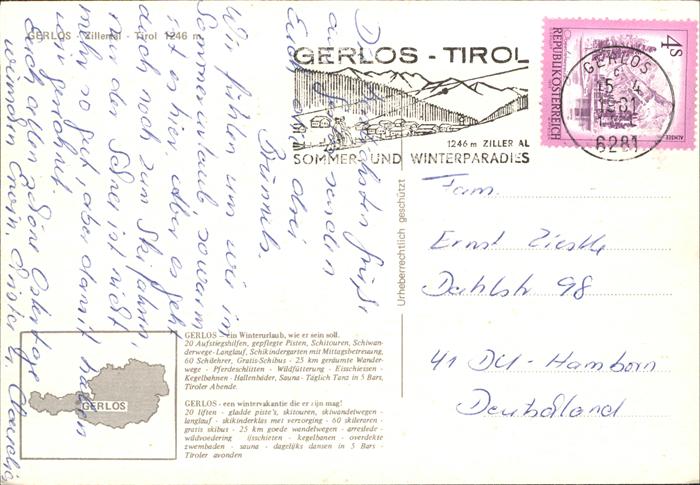 GERLOS - Zillertal - Tirol 1246 m
GERLOS - TIROL
1246 m ZILLER AL
SOMMER- UND WINTERPARADIES
REPUBLIK ÖSTERREICH
4S
ALMSEE
GERLOS
c
15.-4.
1981
6281
Die herzlichsten Grüße
aus Gerlos senden
Euch die drei
Brümels.
Wir fühlen uns wie im
Sommerurlaub, so warm
ist es hier. Aber es geht
auch noch zum Skifahren,
nur der Schnee ist nicht
mehr so gut, aber damit haben
wir gerechnet.
Euch allen schöne Ostertage
wünschen Erwin, Christa u. Claudia
Urheberrechtlich geschützt
Fam.
Ernst
Dahlstr 98
41 DU-Hamborn
Deutschland
GERLOS
GERLOS - ein Winterurlaub, wie er sein soll.
20 Aufstiegshilfen, gepflegte Pisten, Schitouren, Schiwan-
derwege - Langlauf, Schikindergarten mit Mittagsbetreuung,
60 Schilehrer, Gratis-Schibus - 25 km geräumte Wander-
wege - Pferdeschlitten - Wildfütterung - Eisschiessen -
Kegelbahnen - Hallenbäder, Sauna - Täglich Tanz in 5 Bars,
Tiroler Abende.
GERLOS - een wintervakantie die er zijn mag!
20 liften - gladde piste's, skitouren, skiwandelwegen -
langlauf - skikinderklas met verzorging - 60 skileraren -
gratis skibus - 25 km goede wandelwegen - arreslede -
wildvoedering ijsschieten - kegelbanen - overdekte
zwembaden - sauna - dagelijks dansen in 5 Bars -
Tiroler avonden